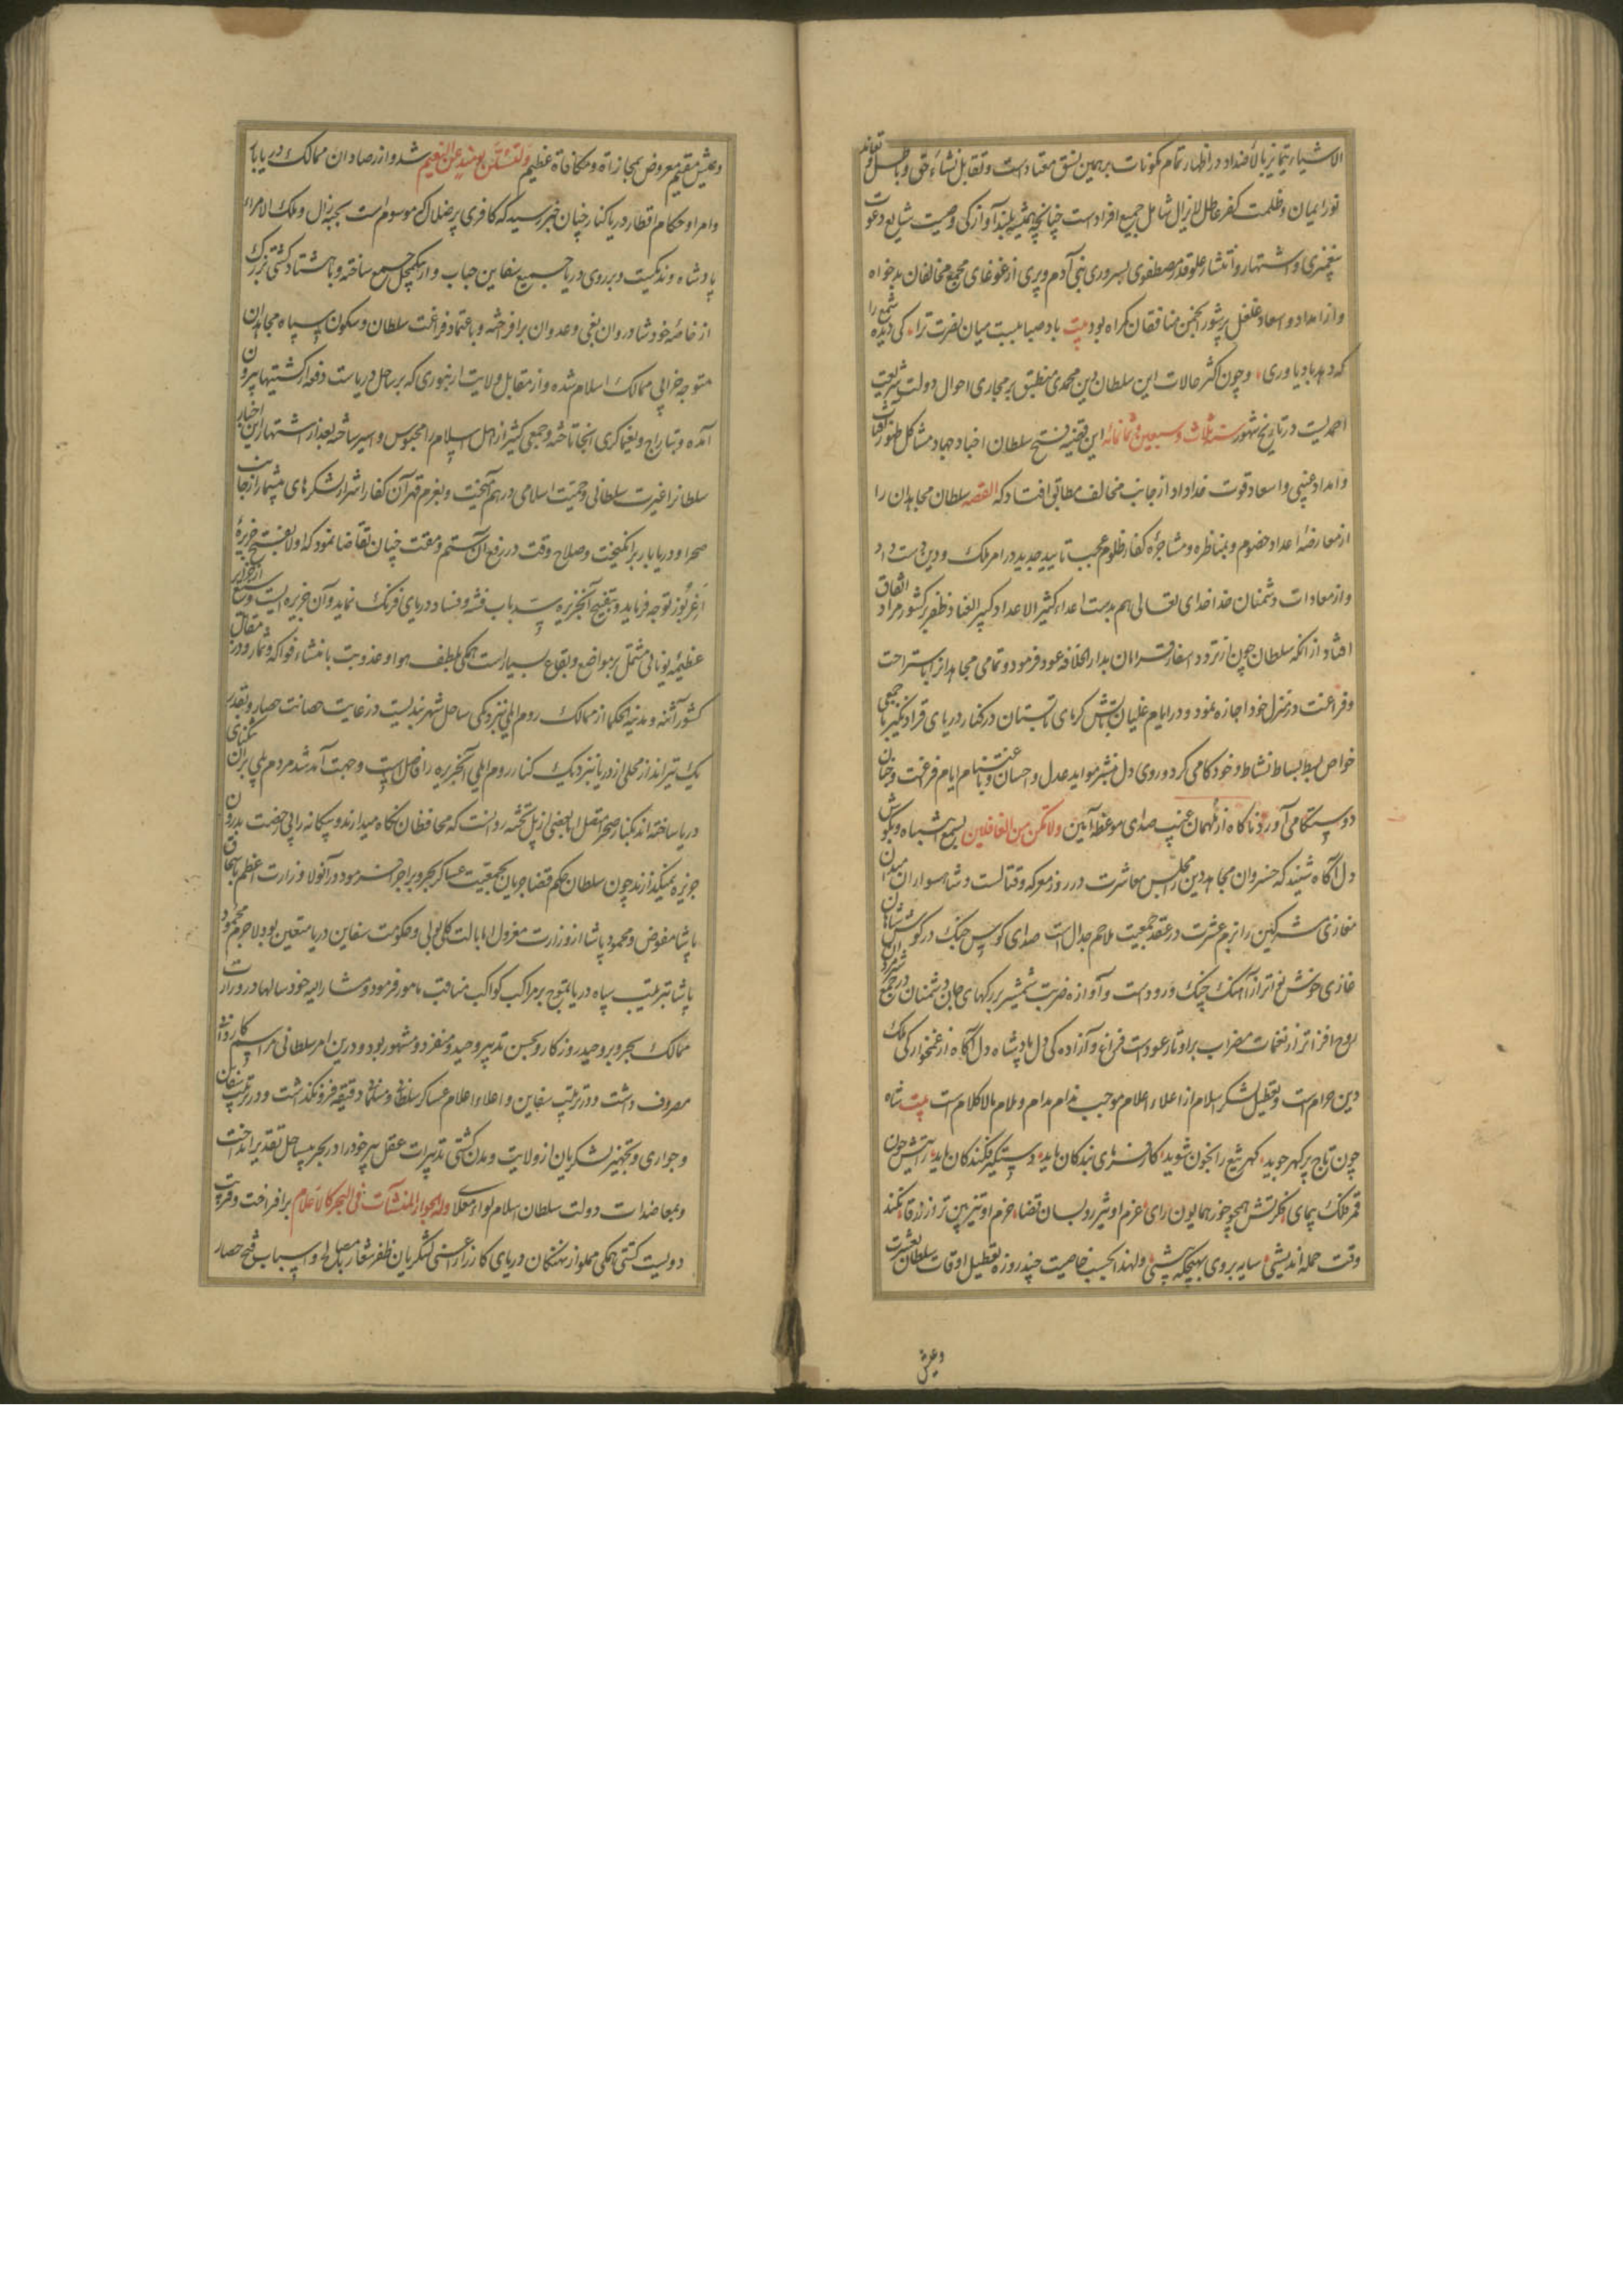 الاشیاء یتمایز بالاضداد در اظهار تمام مکونات بر همین نسق معتاد است و تقابل نشاءٔ حق و باطل و تعاند
نور ایمان و ظلمت کفر عاطل لایزال شامل جمیع افراد است چنانچه همیشه بلند آوازکی وصیت شایع دعوت
پیغمبری و اشتهار و انتشار علو قدر مصطفوی بسروری بنی آدم و پری از غوغای مجمع مخالفان بدخواه
و از امداد و اسعاد غلغل پرشور انجمن منافقان کمراه بود بیت باد صبا ببست میان نصرت ترا کی دیده شمع را
که دهد باد یاوری و چون اکثر حالات این سلطان دین محمدی منطبق بر مجاری احوال دولت شریعت
احمدیست در تاریخ شهور سنه ثلاث و سبعین و ثمانمائه این قضیه فتح سلطان اجناد جهاد مشاکل ظهور
و امداد غیبی و اسعاد قوت خداداد از جانب مخالف مطابق افتاد که القصه سلطان مجاهدان را
از معارضهٔ اعداد خصوم و بمناظره و مشاجرهٔ کفار ظلوم عجب تایید جدید در امر ملک و دین دست داد
و از معادات دشمنان خدا خدای تعالی هم بدست اعداء کثیر الاعداد کبیر العناد ظفر بر کشور مراد اتفاق
افتاد از آنکه سلطان چون از تردد اسفار قرامان بدار الخلافه عود فرمود و تمامی مجاهدانرا باستراحت
و فراغت در منزل خود اجازه نمود و در ایام غلیان تابش کرمای تابستان در کنار دریای قرادنکیز با جمعی
خواص بسط بساط نشاط و خودکامی کرد و روی دل منشر مواید عدل و احسان و باغتنام ایام فراغت
دوستکامی آورد ناکاه از ملهمان غیب صدای موعظه آیین ولاتکن من الغافلین بسمع انتباه و بکوش
دل آگاه شنید که خسروان مجاهد دین را مجلس معاشرت در روز معرکه و قتالست و شاهسواران میدان
مغازی مشرکین را بزم عشرت در عقد جمعیت ملاحم جدال است صدای کوس جنک در کوش شاهان
غازی خوش نواتر از آهنک چنک و رود است و آوازه ضربت شمشیر بر رکهای جان دشمنان در جمع
روح افزاتر از نغمات مضراب بر اوتار عود است فراغ و آزاده کی دل پادشاه دل آگاه از غمخوارکی ملک
دین حرام است و تعطیل لشکر اسلام از اعلاء اعلام موجب ندام مدام و ملام بالاکلام است بیت شاه
چون تاج پرکهر جوید کهر تیغ را بخون شوید
قمر فلک پیمای فکرتش همچو خور همایون رای عزم او تیزرو بسان قضا حزم او تیزبین تر از زرقا نکند
وقت حمله اندیشی سایه بر وی بهیچکه پیشی ولهذا بحسب خاصیت چند روزه تعطیل اوقات سلطان بعشرت
وعیش
وعیش مقیم معروض بمجازاة و مکافاة عظیم ولتسئلن یومئذ عن النعیم شد و از رصادان ممالک دریابار
و امرا و حکام اقطار دریاکنار چنان خبر رسید که کافری پر ضلال که موسوم است بجنرال و ملک الامراء
پادشاه وندیکست و بر روی دریا جمیع سفاین حباب وار یکجل جمع ساخته و با هشتاد کشتی بزرک
از خاصهٔ خود شادروان بغی و عدوان برافراخته و باعتماد فراغت سلطان و سکون سپاه مجاهدان
متوجه خرابی ممالک اسلام شده و از مقابل ولایت که بر ساحل دریاست دفعة از کشتیها بیرون
آمده و بتاراج و یغماکری آنجا تاخته و جمعی کثیر از اهل اسلام را محبوس و اسیر ساخته بعد از اشتهار این اخبار
سلطانرا غیرت سلطانی و حمیت اسلامی درهم آمیخت و بعزم قهر آن کفار اشرار لشکرهای بیشمار از جانب
صحرا و دریابار برانکیخت و صلاح وقت در رفع آن ستم و مقت چنان تقاضا نمود که اولا بفتح جزیرهٔ
اغریبوز توجه فرماید و بفتح آن جزیره سد باب فتنه و فساد دریای فرنک نماید و آن جزیره ایست وسیع از جزایر
عظیمهٔ یونانی مشتمل بر مواضع و بقاع بسیار است همکی بلطف هوا و عذوبت با منشاء فواکه و ثمار و در مقابل
کشور آتنه و مدینة الحکما از ممالک روم ایلی بنزدیکی ساحل شهربندیست در غایت حصانت حصار و بقدر
یک تیرانداز محلی از دریا بنزدیک کنار روم ایلی آن جزیره را فاصل است و جهت آمد شد مردم پلی بران تنکنای
دریا ساخته اند بکنار صحرا متصل اما بعضی از پل تخته روانست که محافظان نکاه میدارند و بیکانه را بی رخصت بدرون
جزیره نمیکذارند چون سلطان بحکم قضا جریان بجمعیت عساکر بحر و بر اجرا فرمود در آنولا وزارت اعظم باسحاق
پاشا مفوض و محمود پاشا از وزارت معزول اما بایالت کلی بولی و حکومت سفاین دریا متعین بود لاجرم محمود
پاشا بترتیب سپاه دریا بتموج بر مراکب کواکب مناقب مامور فرمود و مشار الیه خود سالها در وزارت
ممالک بحر و بر وحید روزکار و بحسن تدبیر وحید و منفرد و مشهور بود و درین امر سلطانی مراسم کاردانی
مصروف داشت و در ترتیب سفاین و اعلاء اعلام عساکر سلطانی و مسلمانی دقیقه فرونکذاشت و در ترتیب سفاین
و جواری و تجهیز لشکریان از ولایت و مدن کشتی تدبیرات عقل پیر خود را در بحر بساحل تقدیر انداخت
و بمعاضدات دولت سلطان اسلام لواء معلای وله الجوار المنشآت فی البحر کالاعلام برافراخت و قرب
دویست کشتی همکی مملو از نهنکان دریای کارزار اعنی لشکریان ظفر شعار و اسباب فتح حصار